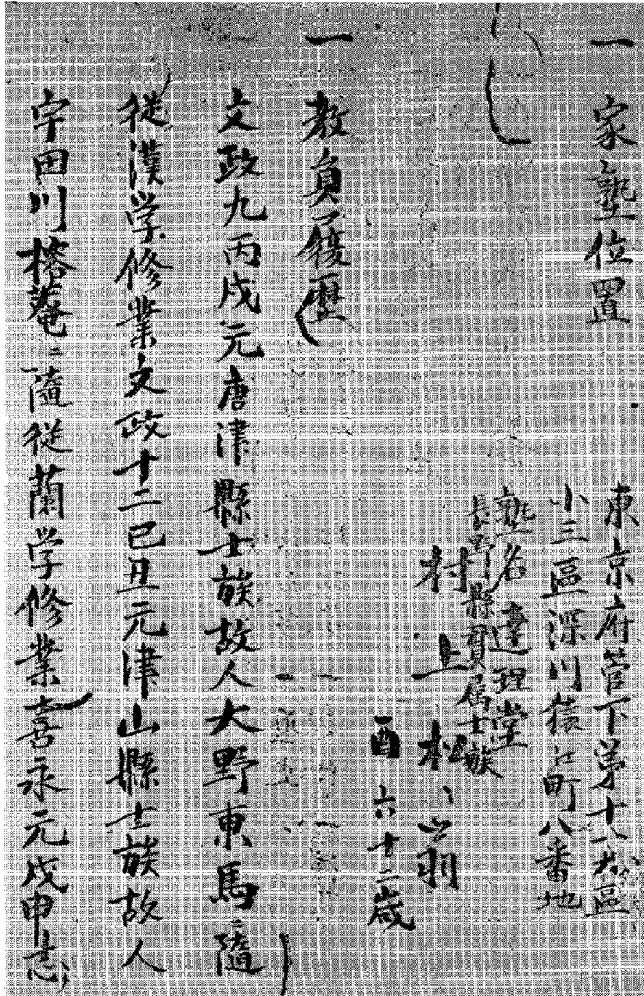 一 家塾位置
東京府管下第十一大區
小三區深川猿江町八番地
塾名達理堂
長野縣貫属士族
村上松翁
酉 六十二歳
一 教員ノ履歴
文政九丙戌元唐津縣士族故人大野東馬ニ隨
從漢学修業文政十二己丑元津山縣士族故人
宇田川榕菴ニ隨從蘭学修業嘉永元戊申志